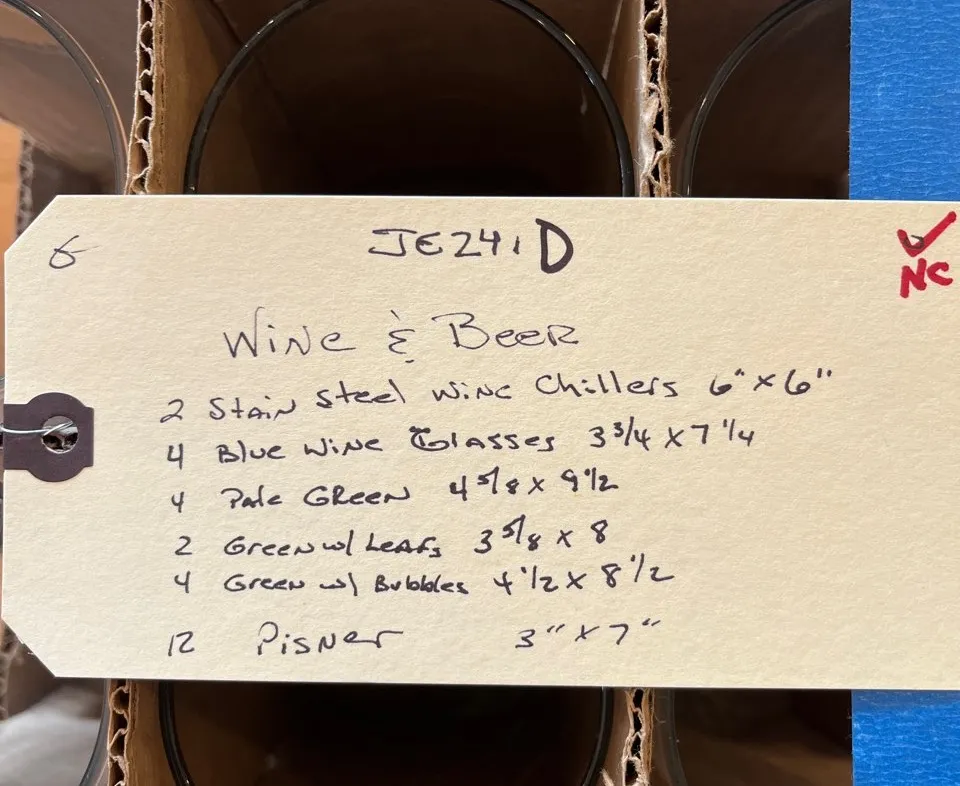 6 JE241D ✓
NC
Wine & Beer
2 Stain Steel Wine Chillers 6" x 6"
4 Blue Wine Glasses 3 3/4 x 7 1/4
4 Pale Green 4 5/8 x 9 1/2
2 Green w/ Leafs 3 5/8 x 8
4 Green w/ Bubbles 4 1/2 x 8 1/2
12 Pisner 3" x 7"